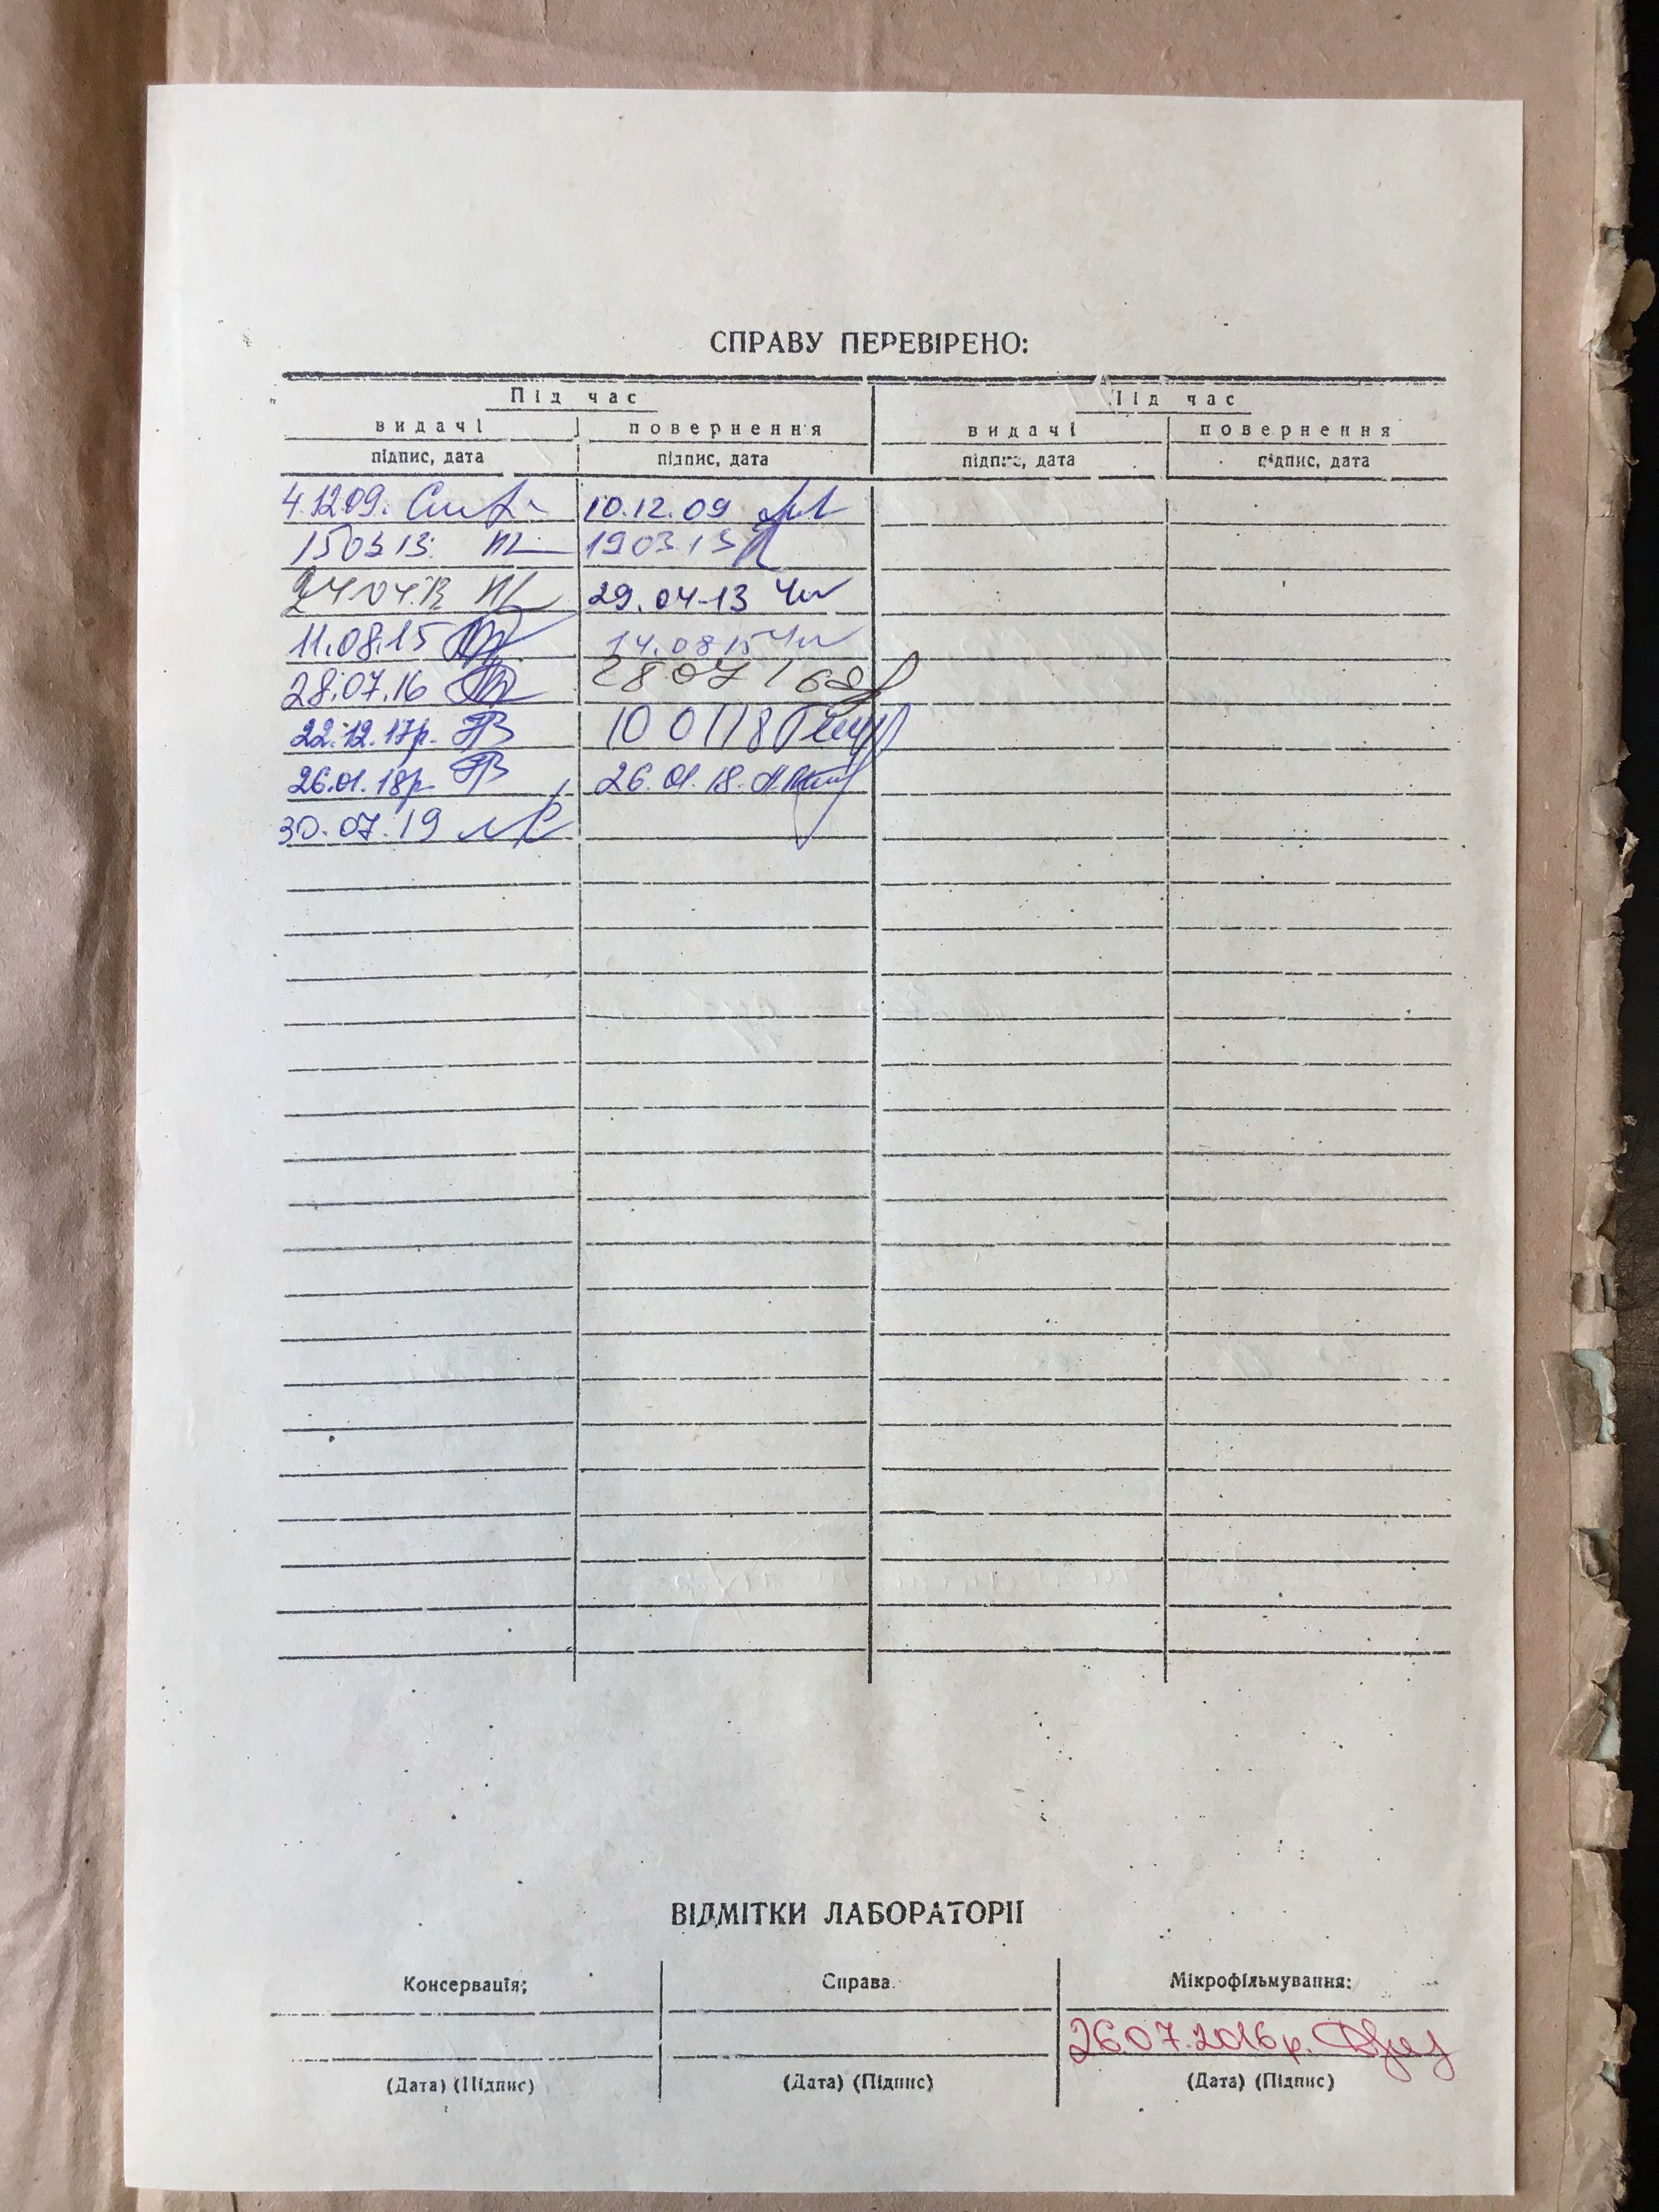 СПРАВУ ПЕРЕВІРЕНО:
Під час Під час
видачі повернення видачі повернення
підпис, дата підпис, дата підпис, дата підпис, дата
4.12.09. 10.12.09
15 03 13. 19 03.13
24.04.13 29.04.13
11.08.15 14.08 15
28.07.16 28 07 16
22.12.17р. 10 01 18
26.01.18р. 26.01.18.
30.07.19
ВІДМІТКИ ЛАБОРАТОРІІ
Консервація; Справа. Мікрофільмування:
26.07.2016р.
(Дата) (Підпис) (Дата) (Підпис) (Дата) (Підпис)